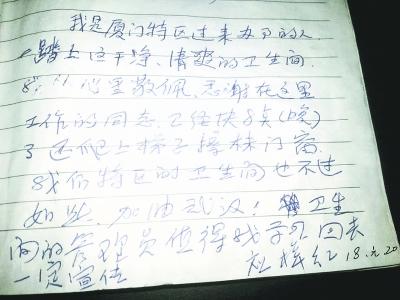 我是厦门特区过来办事的人
踏上这干净、清爽的卫生间
心里敬佩、感谢在这里
工作的同志、已经快8点(晚)
了还爬上梯子擦门窗.
我们特区的卫生间也不过
如此、加油武汉! 卫生
间的管理员值得我学习 回去
一定宣传 18.元.20